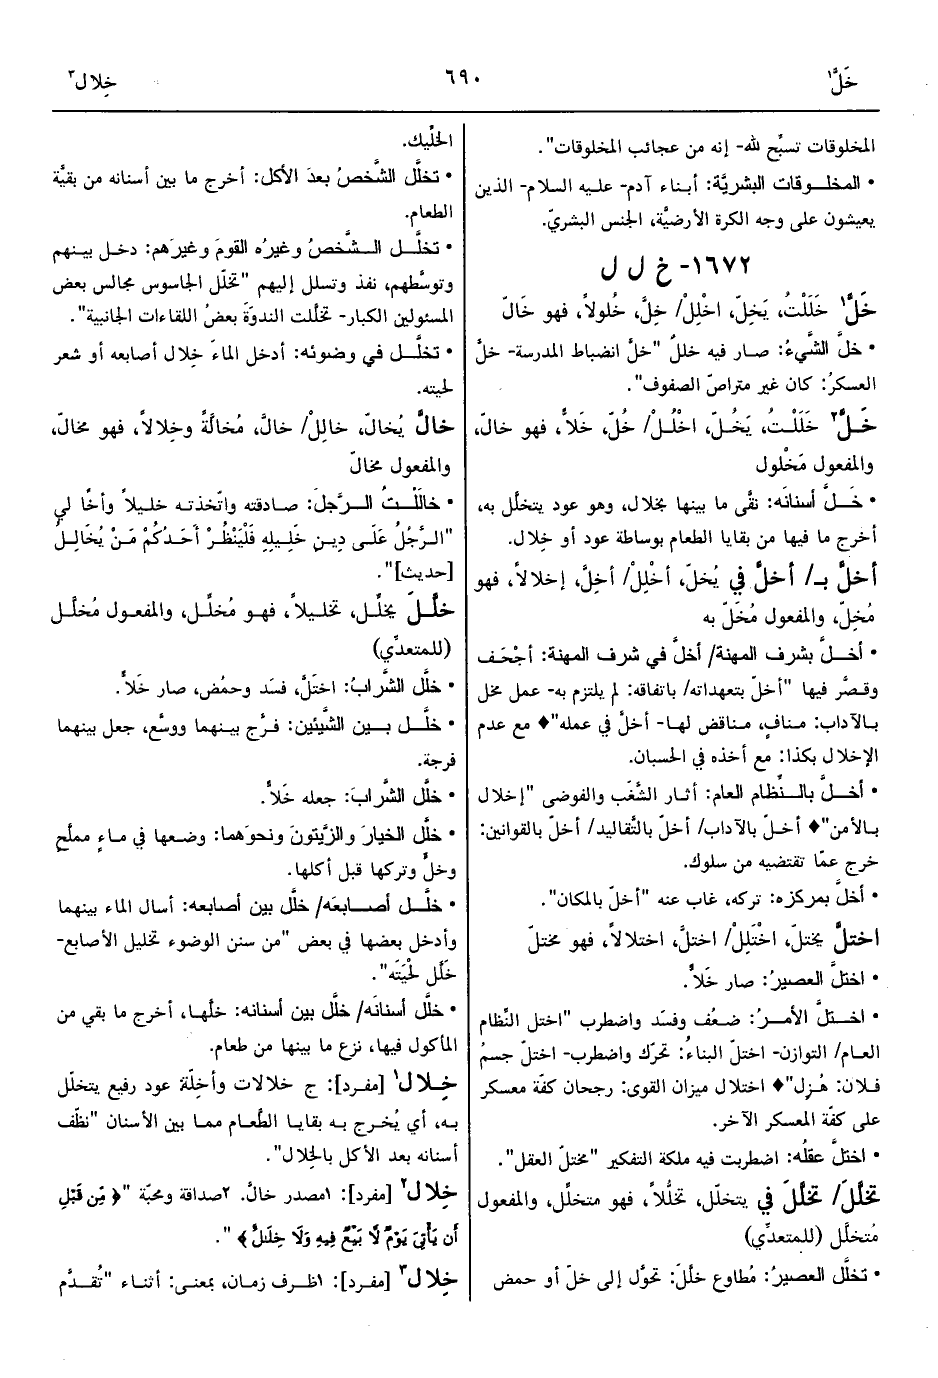 خَلَّ١
٦٩٠
خِلال٣
المخلوقات تسبِّح لله- إنه من عجائب المخلوقات".
• المخلوقات البشريَّة: أبناء آدم- عليه السلام- الذين
يعيشون على وجه الكرة الأرضيَّة، الجنس البشريّ.
١٦٧٢- خ ل ل
خَلَّ١ خَلَلْتُ، يَخِلّ، اخْلِلْ/ خِلَّ، خُلولاً، فهو خَالّ
• خلَّ الشَّيءُ: صار فيه خللٌ "خلَّ انضباط المدرسة- خلَّ
العسكرُ: كان غير متراصّ الصفوف".
خَلَّ٢ خَلَلْتُ، يَخُلّ، اخْلُلْ/ خُلّ، خَلاًّ، فهو خَالّ،
والمفعول مَخْلول
• خَلَّ أسنانَه: نقَّى ما بينها بخلال، وهو عود يتخلّل به،
أخرج ما فيها من بقايا الطعام بوساطة عود أو خِلال.
أخلَّ بـ/ أخلَّ في يُخلّ، أخْلِلْ/ أخِلَّ، إخلالاً، فهو
مُخِلّ، والمفعول مُخَلّ به
• أخلَّ بشرف المهنة/ أخلَّ في شرف المهنة: أجْحَف
وقصَّر فيها "أخلّ بتعهداته/ باتفاقه: لم يلتزم به- عمل مخل
بالآداب: منافٍ، مناقض لها- أخلَّ في عمله"♦ مع عدم
الإخلال بكذا: مع أخذه في الحسبان.
• أخلَّ بالنِّظام العام: أثار الشَّغَب والفوضى "إخلال
بالأمن"♦ أخلّ بالآداب/ أخلّ بالتَّقاليد/ أخلّ بالقوانين:
خرج عمّا تقتضيه من سلوك.
• أخلَّ بمركزه: تركه، غاب عنه "أخلّ بالمكان".
اختلَّ يختلّ، اخْتَلِلْ/ اختلَّ، اختلالاً، فهو مختلّ
• اختلَّ العصيرُ: صار خَلاًّ.
• اختلَّ الأمرُ: ضعُف وفسَد واضطرب "اختل النِّظام
العام/ التوازن- اختلّ البناءُ: تحرّك واضطرب- اختلّ جسمُ
فلان: هُزِل"♦ اختلال ميزان القوى: رجحان كفّة معسكر
على كفّة المعسكر الآخر.
• اختلَّ عقلُه: اضطربت فيه ملكة التفكير "مختلّ العقل".
تخلَّلَ/ تخلَّلَ في يتخلّل، تخلُّلاً، فهو متخلِّل، والمفعول
مُتخلَّل (للمتعدِّي)
• تخلَّل العصيرُ: مُطاوع خلَّلَ: تحوَّل إلى خلّ أو حمض
الخلِّيك.
• تخلَّل الشَّخصُ بعدَ الأكل: أخرج ما بين أسنانه من بقيَّة
الطعام.
• تخلَّل الشَّخصُ وغيرُه القومَ وغيرَهم: دخل بينهم
وتوسَّطهم، نفذ وتسلل إليهم "تخلّل الجاسوس مجالس بعض
المسئولين الكبار- تخلَّلت الندوةَ بعضُ اللقاءات الجانبية".
• تخلَّل في وضوئه: أدخل الماءَ خِلال أصابعه أو شعر
لحيته.
خالَّ يُخالّ، خالِلْ/ خالَّ، مُخالَّةً وخِلالاً، فهو مخالّ،
والمفعول مخالّ
• خالَلْتُ الرَّجلَ: صادقته واتّخذته خليلاً وأخًا لي
"الرَّجُلُ عَلَى دِينِ خَلِيلِهِ فَلْيَنْظُرْ أَحَدُكُمْ مَنْ يُخَالِلُ
[حديث]".
خلَّلَ يخلِّل، تخليلاً، فهو مُخلِّل، والمفعول مُخلَّل
(للمتعدِّي)
• خلَّل الشَّرابُ: اختَلَّ، فسَد وحمُض، صار خَلاًّ.
• خلَّل بين الشَّيئين: فرَّج بينهما ووسَّع، جعل بينهما
فرجة.
• خلَّل الشَّرابَ: جعله خَلاًّ.
• خلَّل الخيارَ والزَّيتونَ ونحوَهما: وضعها في ماءٍ مملّحٍ
وخلٍّ وتركها قبل أكلها.
• خلَّل أصابعَه/ خلَّل بين أصابعه: أسال الماء بينهما
وأدخل بعضها في بعض "من سنن الوضوء تخليل الأصابع-
خَلَّل لحْيَتَه".
• خلَّل أسنانَه/ خلَّل بين أسنانه: خلَّها، أخرج ما بقي من
المأكول فيها، نزع ما بينها من طعام.
خِلال١ [مفرد]: ج خلالات وأخِلّة: عود رفيع يتخلّل
به، أي يُخرج به بقايا الطَّعام مما بين الأسنان "نظّف
أسنانه بعد الأكل بالخِلال".
خلال٢ [مفرد]: ١مصدر خالَّ. ٢صداقة ومحبّة "﴿مِّن قَبْلِ
أَن يَأْتِيَ يَوْمٌ لَّا بَيْعٌ فِيهِ وَلَا خِلَالٌ﴾".
خلال٣ [مفرد]: ١ظرف زمان، بمعنى: أثناء "تُقدَّم